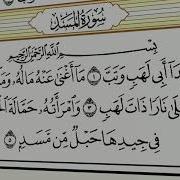 سُورَةُ المَسَد
بِسْمِ ٱللَّهِ ٱلرَّحْمَٰنِ ٱلرَّحِيمِ
دَآ أَبِى لَهَبٍ وَتَبَّ ١ مَآ أَغْنَىٰ عَنْهُ مَالُهُۥ وَمَ
لَىٰ نَارًا ذَاتَ لَهَبٍ ٣ وَٱمْرَأَتُهُۥ حَمَّالَةَ ٱلْ
فِى جِيدِهَا حَبْلٌ مِّن مَّسَدٍۭ ٥